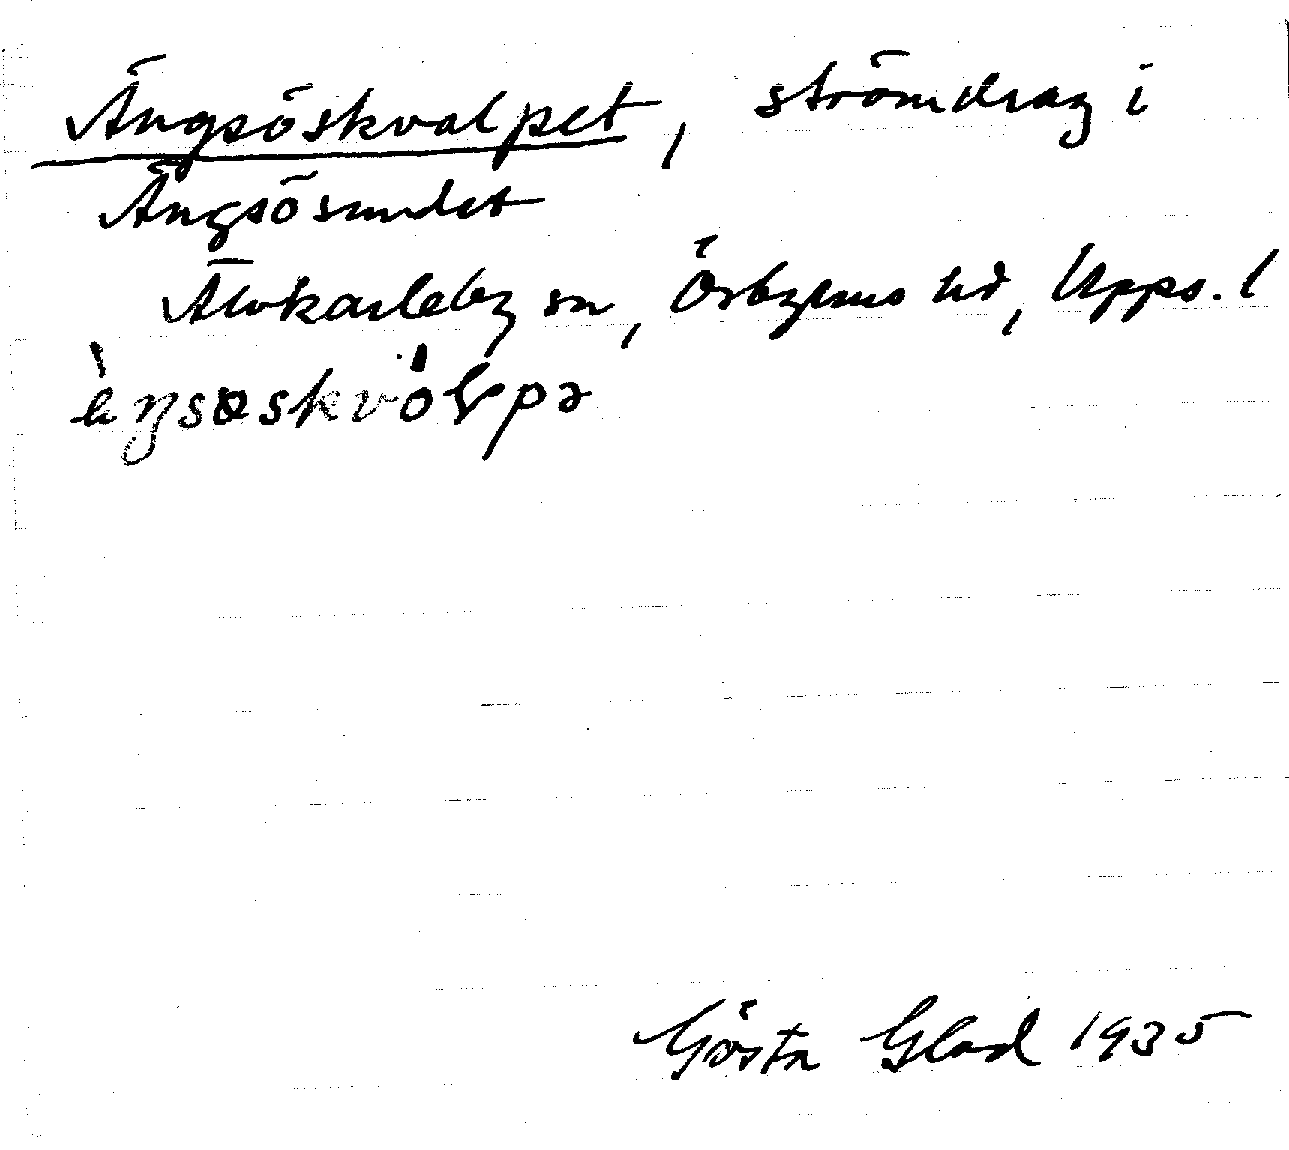 Ängsöskvalpet, strömdrag i
Ängsösundet
Älvkarleby sn, Örbyhus hd, Upps. l
Gösta Glad 1935